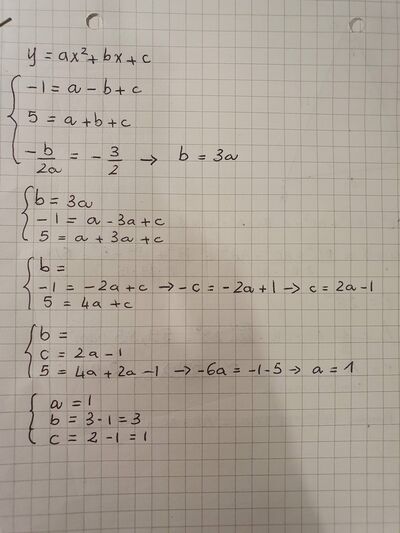 y = ax² + bx + c
-1 = a - b + c
5 = a + b + c
-b/2a = -3/2 → b = 3a
b = 3a
-1 = a - 3a + c
5 = a + 3a + c
b =
-1 = -2a + c → -c = -2a + 1 → c = 2a - 1
5 = 4a + c
b =
c = 2a - 1
5 = 4a + 2a - 1 → -6a = -1 - 5 → a = 1
a = 1
b = 3·1 = 3
c = 2 - 1 = 1